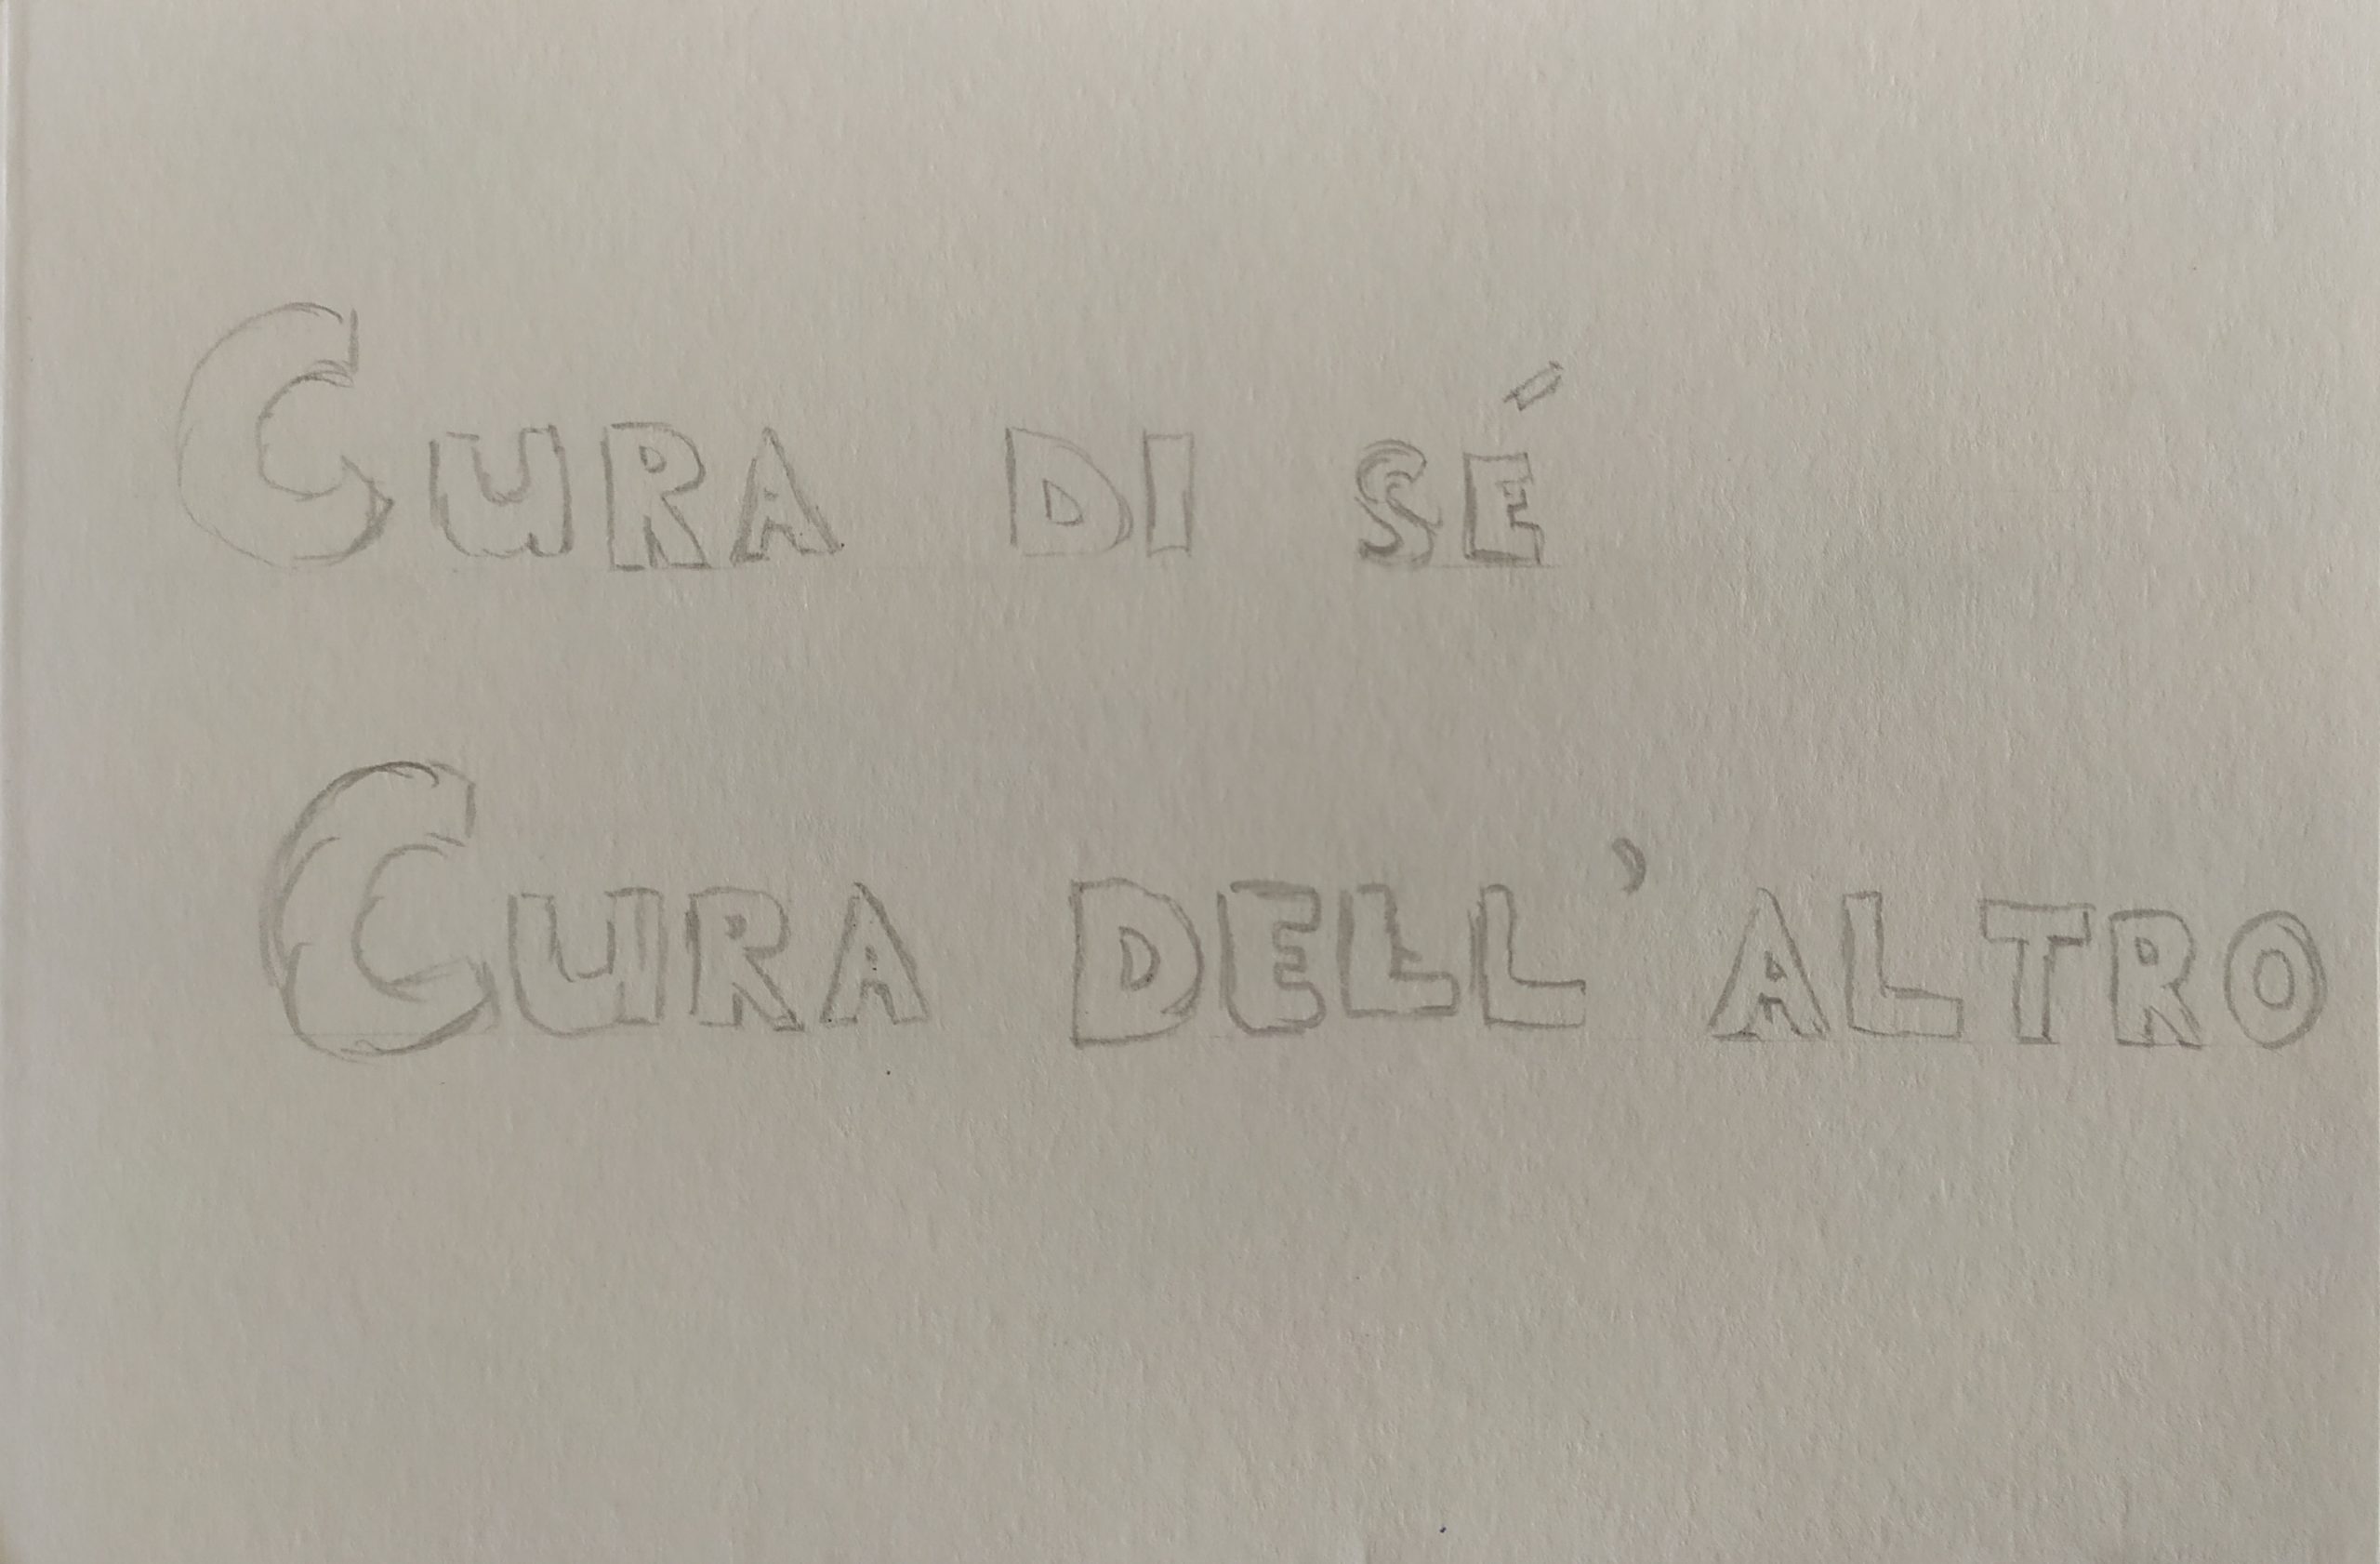 CURA DI SÉ
CURA DELL'ALTRO